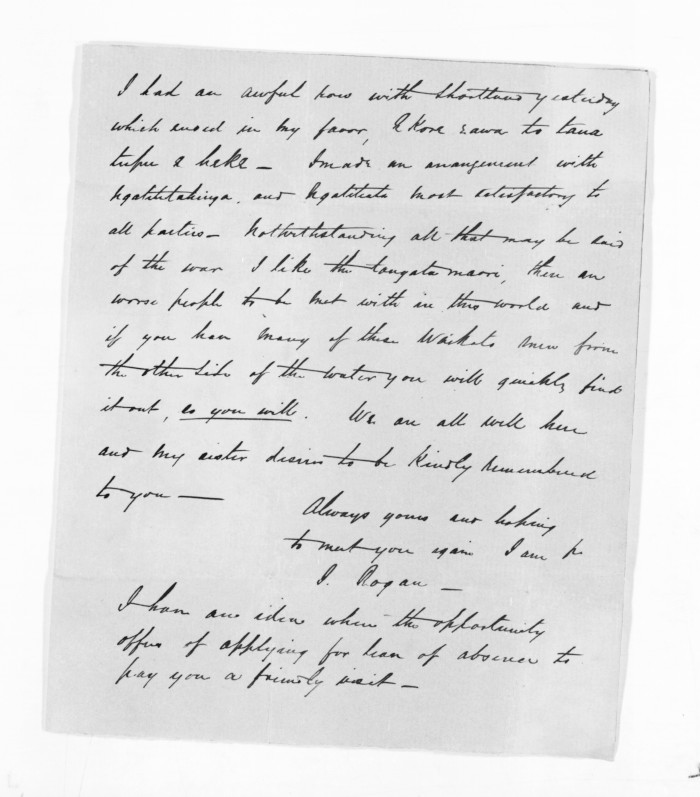 I had an awful row with Shortland yesterday
which ended in my favor, E Kore e awa to tana
tupu e heke — I made an arrangement with
Ngatititahinga and Ngatitista most satisfactory to
all parties — Notwithstanding all that may be said
of the war I like the tangata maori, there are
worse people to be met with in this world and
if you have many of these Waikato men from
the other side of the water you will quickly find
it out, as you will. We are all well here
and my sister desires to be kindly remembered
to you —
Always yours and hoping
to meet you again I am
J. Rogan —
I have an idea when the opportunity
offers of applying for leave of absence to
pay you a friendly visit —